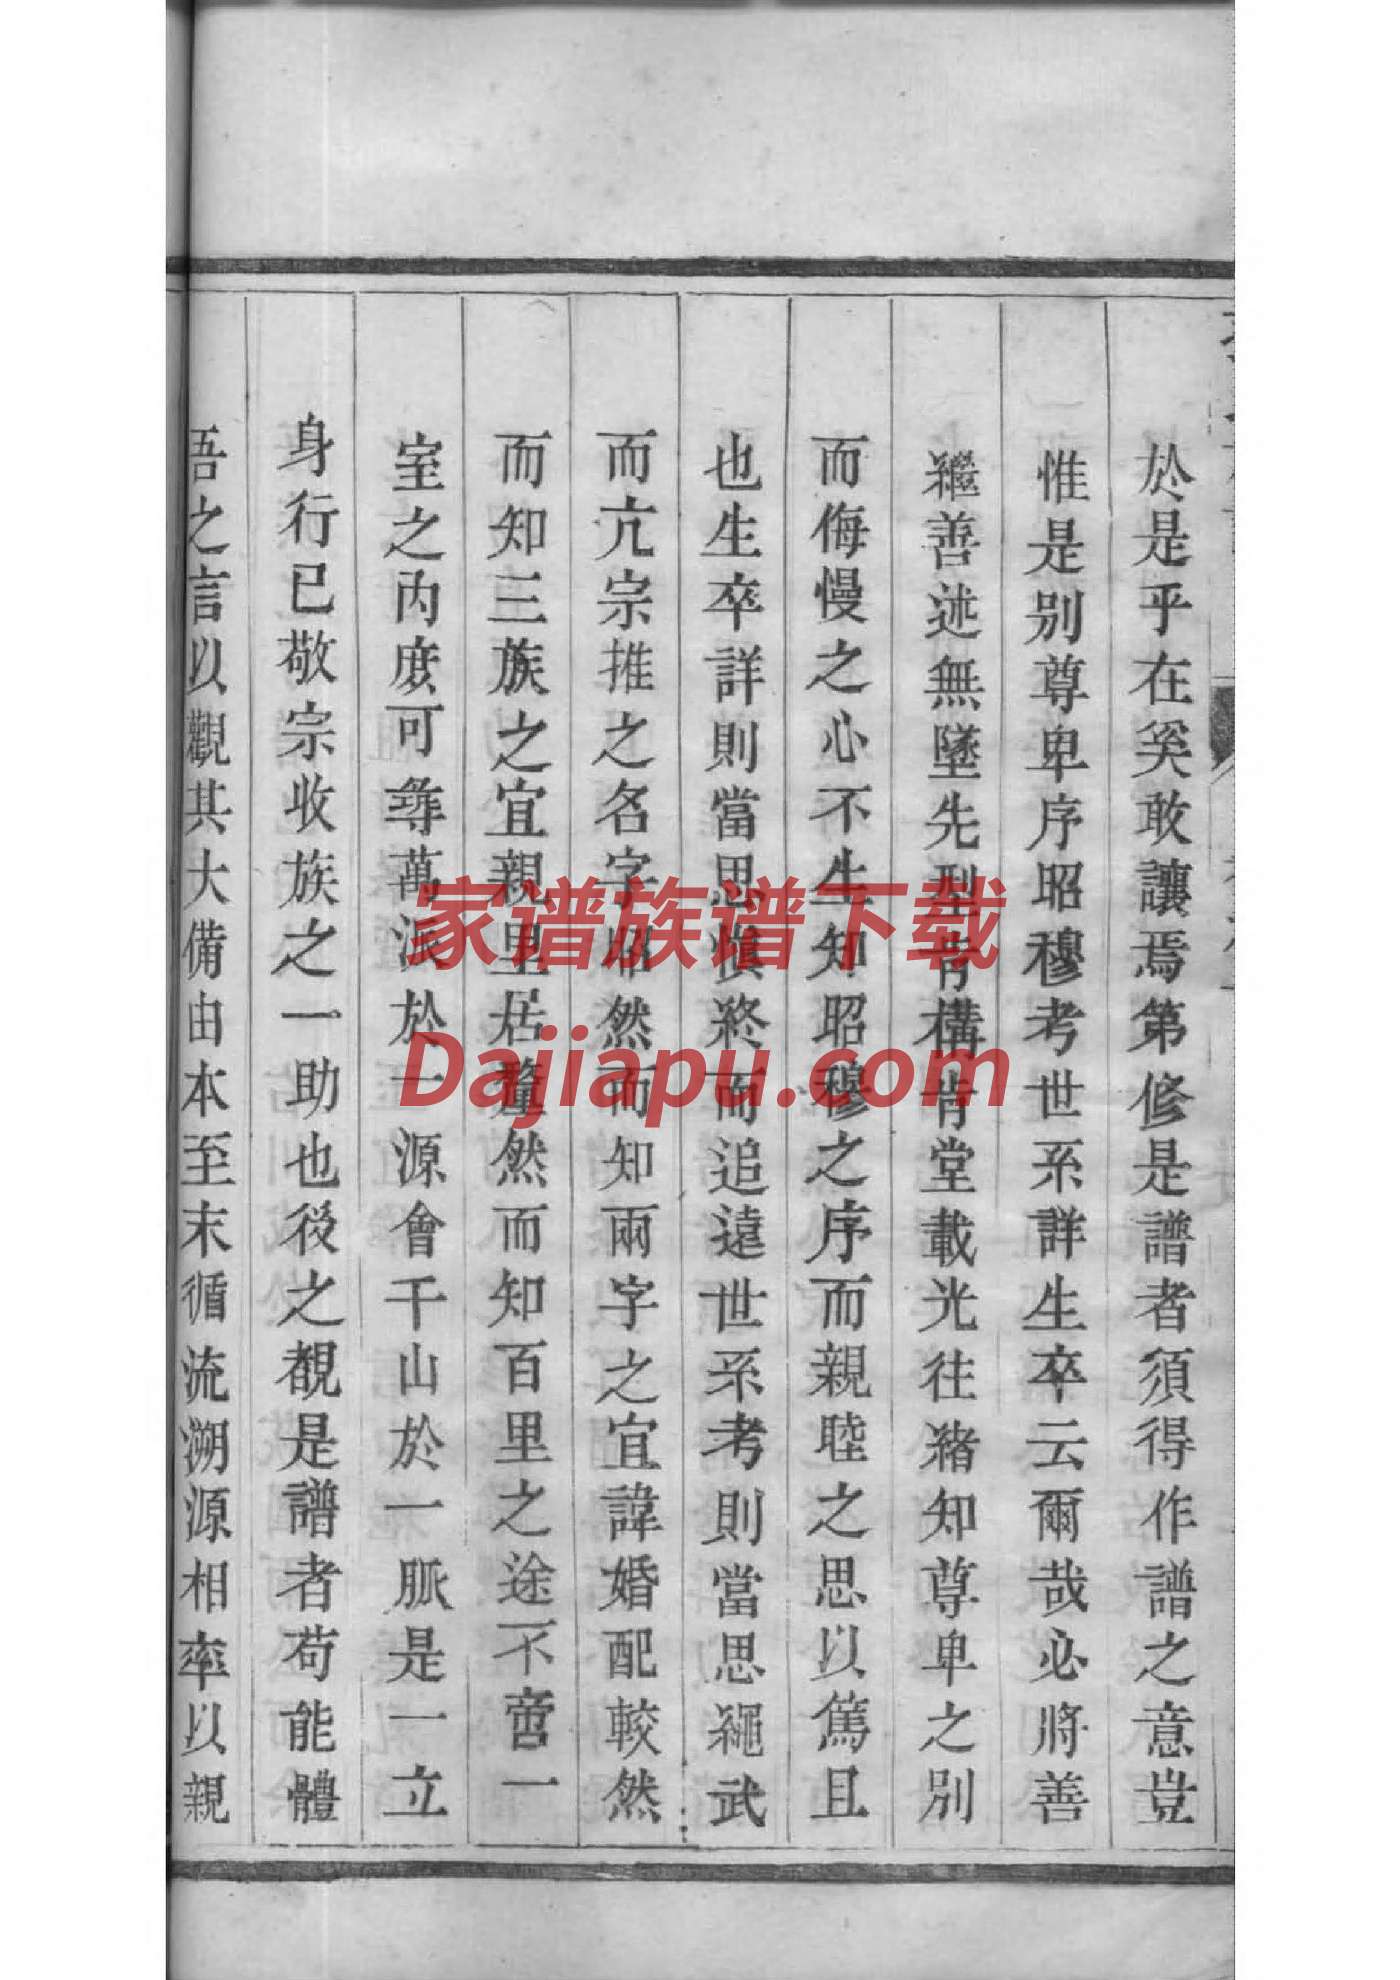 於是乎在奚敢讓焉第修是譜者須得作譜之意豈
惟是别尊卑序昭穆考世系詳生卒云爾哉必將善
繼善述無墜先型肯構肯堂載光往緒知尊卑之别
而侮慢之心不生知昭穆之序而親睦之思以篤且
也生卒詳則當思慎終而追遠世系考則當思繩武
而亢宗推之名字昭然而知兩字之宜諱婚配較然
而知三族之宜親里居釐然而知百里之途不啻一
室之内庶可尋萬派於一源會千山於一脈是一立
身行已敬宗收族之一助也後之覩是譜者苟能體
吾之言以觀其大備由本至末循流溯源相率以親
家谱族谱下载
Dajiapu.com